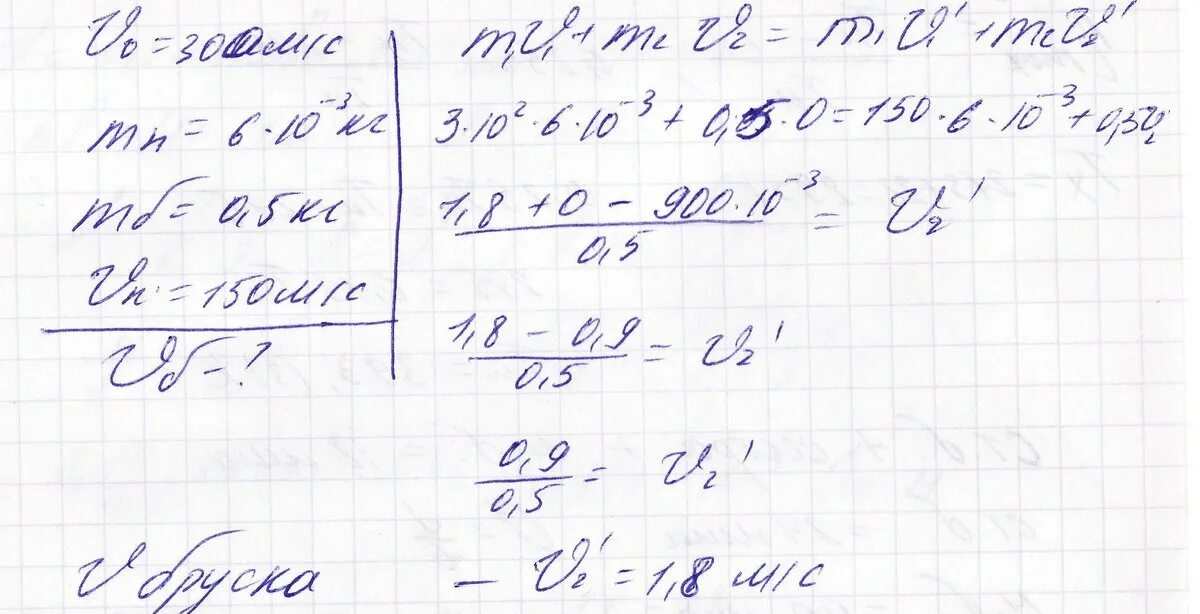 V₀ = 300 м/с
mп = 6·10⁻³ кг
mб = 0,5 кг
Vп = 150 м/с
Vб - ?
m₁V₁ + m₂V₂ = m₁V₁' + m₂V₂'
3·10²·6·10⁻³ + 0,5·0 = 150·6·10⁻³ + 0,5V₂'
(1,8 + 0 - 900·10⁻³)/0,5 = V₂'
(1,8 - 0,9)/0,5 = V₂'
0,9/0,5 = V₂'
V бруска - V₂' = 1,8 м/с